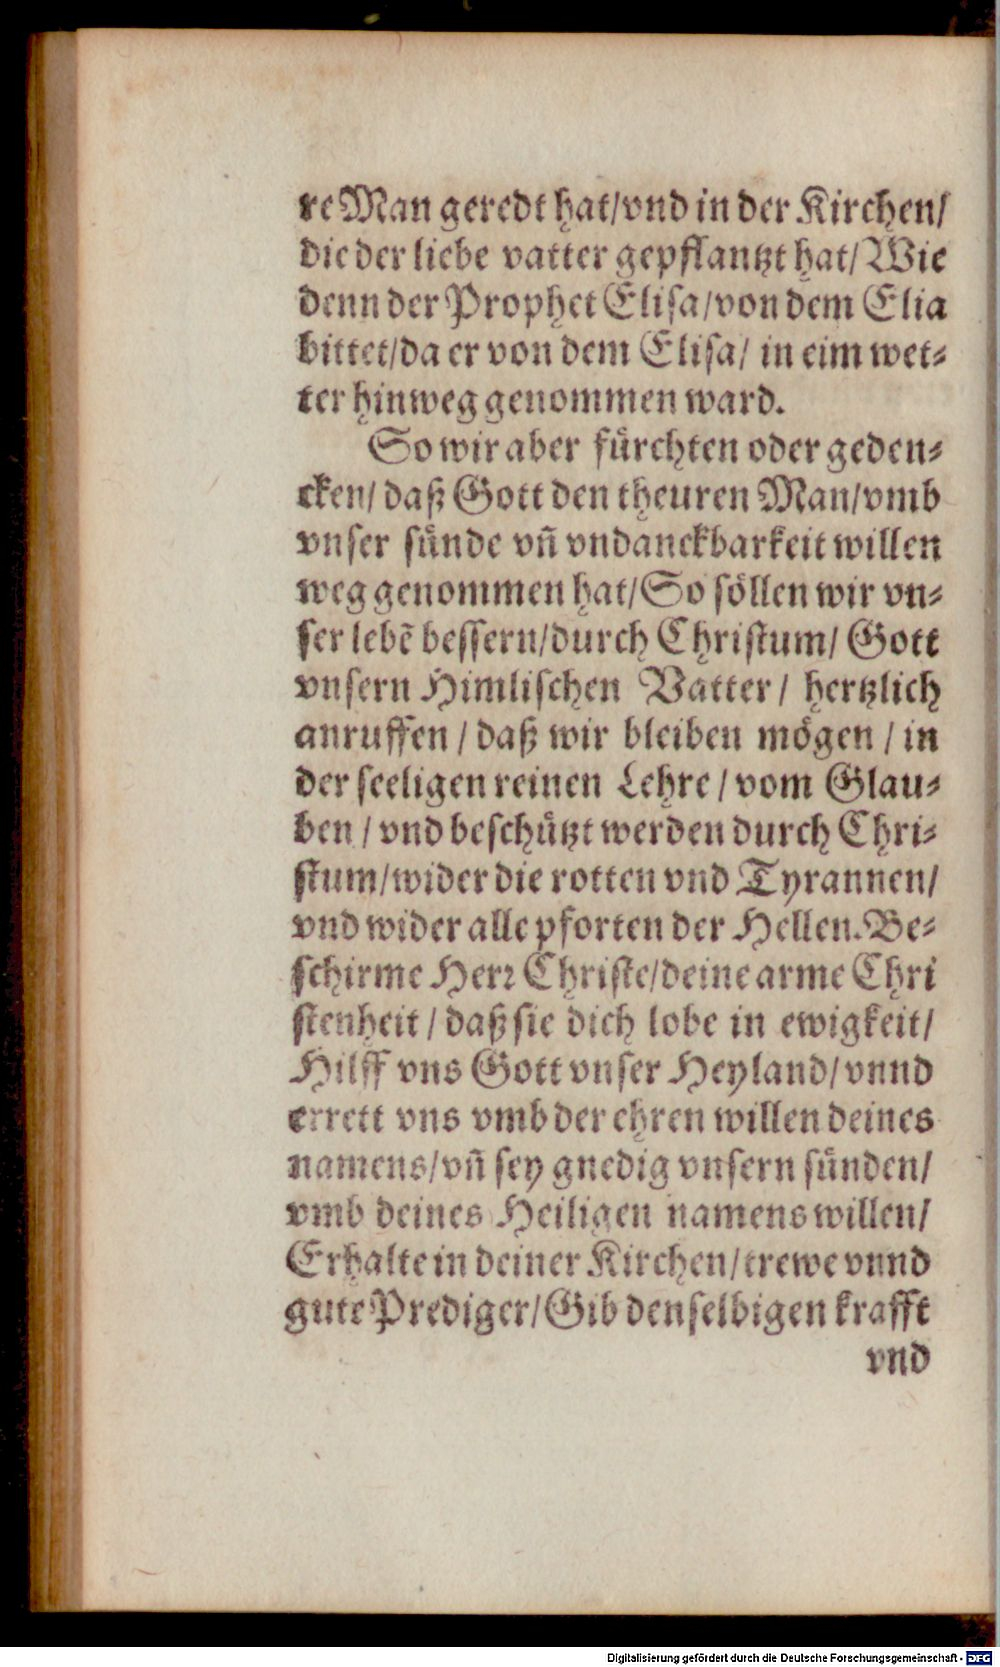 re Man geredt hat/vnd in der Kirchen/
die der liebe vatter gepflantzt hat/Wie
denn der Prophet Elisa/von dem Elia
bittet/da er von dem Elisa/ in eim wet-
ter hinweg genommen ward.
So wir aber fürchten oder geden-
cken/ daß Gott den theuren Man/vmb
vnser sünde vñ vndanckbarkeit willen
weg genommen hat/So söllen wir vn-
ser lebẽ bessern/durch Christum/ Gott
vnsern Himlischen Vatter/ hertzlich
anruffen / daß wir bleiben mögen / in
der seeligen reinen Lehre / vom Glau-
ben / vnd beschützt werden durch Chri-
stum/wider die rotten vnd Tyrannen/
vnd wider alle pforten der Hellen. Be-
schirme Herr Christe/deine arme Chri
stenheit / daß sie dich lobe in ewigkeit/
Hilff vns Gott vnser Heyland/vnnd
errett vns vmb der ehren willen deines
namens/vñ sey gnedig vnsern sünden/
vmb deines Heiligen namens willen/
Erhalte in deiner Kirchen/trewe vnnd
gute Prediger/Gib denselbigen krafft
vnd
Digitalisierung gefördert durch die Deutsche Forschungsgemeinschaft - DFG